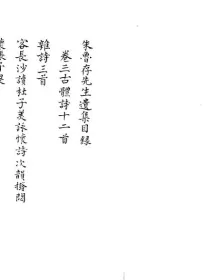 朱魯存先生遺集目錄
卷三古體詩十二首
雜詩三首
客長沙讀杜子美詠懷詩次韻撥悶